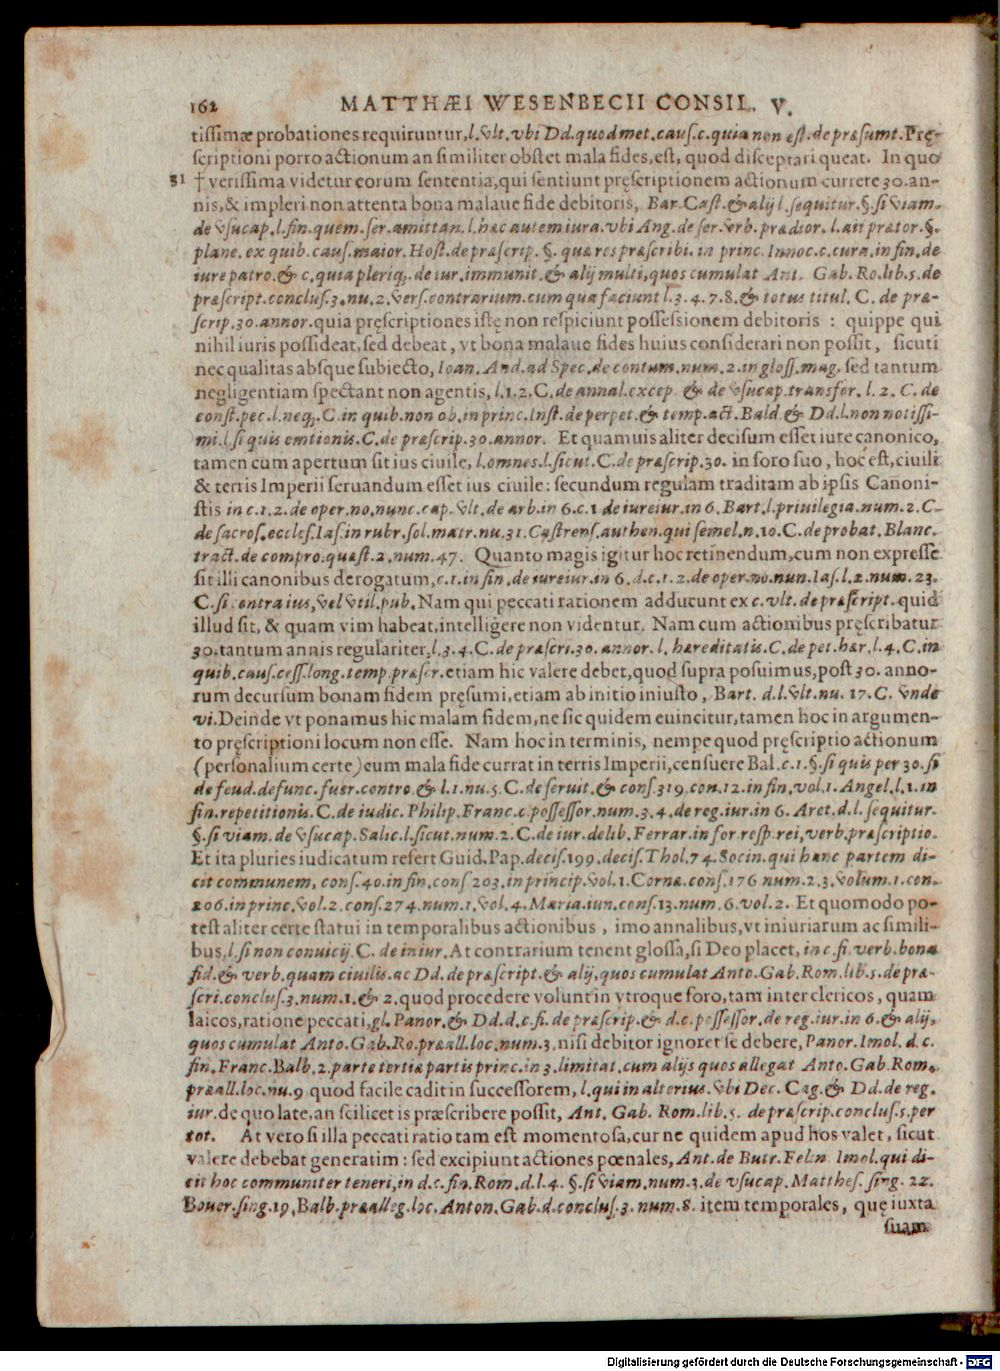 162 MATTHÆI WESENBECII CONSIL. V.
tissimæ probationes requiruntur, l. vlt. vbi Dd. quod met. caus. c. quia non est. de præsumt. Prę-
scriptioni porro actionum an similiter obstet mala fides, est, quod disceptari queat. In quo
81 † verissima videtur eorum sententia, qui sentiunt pręscriptionem actionum currere 30. an-
nis, & impleri non attenta bona malaue fide debitoris, Bar. Cast. & alij l. sequitur. §. si viam.
de vsucap. l. fin. quem. ser. amittan. l. hac autem iura. vbi Ang. de ser. vrb. prædior. l. ait prætor. §.
plane. ex quib. caus. maior. Host. de præscrip. §. quæ res præscribi. in princ. Innoc. c. cura. in fin. de
iure patro. & c. quia pleriq; de iur. immunit. & alij multi, quos cumulat Ant. Gab. Ro. lib. 5. de
præscript. conclus. 3. nu. 2. vers. contrarium. cum qua faciunt l. 3. 4. 7. 8. & totus titul. C. de præ-
scrip. 30. annor. quia pręscriptiones istę non respiciunt possessionem debitoris : quippe qui
nihil iuris possideat, sed debeat, vt bona malaue fides huius considerari non possit, sicuti
nec qualitas absque subiecto, Ioan. And. ad Spec. de contum. num. 2. in gloss. mag. sed tantum
negligentiam spectant non agentis, l. 1. 2. C. de annal. excep. & de vsucap. transfor. l. 2. C. de
const. pec. l. neq; C. in quib. non ob. in princ. Inst. de perpet. & temp. act. Bald. & Dd. l. non notissi-
mi. l. si quis emtionis. C. de præscrip. 30. annor. Et quamuis aliter decisum esset iure canonico,
tamen cum apertum sit ius ciuile, l. omnes. l. sicut. C. de præscrip. 30. in foro suo, hoc est, ciuili
& terris Imperii seruandum esset ius ciuile: secundum regulam traditam ab ipsis Canoni-
stis in c. 1. 2. de oper. no. nunc. cap. vlt. de arb. in 6. c. 1 de iureiur. in 6. Bart. l. priuilegia. num. 2. C.
de sacros. eccles. Ias. in rubr. sol. matr. nu. 31. Castrens. authen. qui semel. n. 10. C. de probat. Blanc.
tract. de compro. quæst. 2. num. 47. Quanto magis igitur hoc retinendum, cum non expresse
sit illi canonibus derogatum, c. 1. in fin. de iureiur. in 6. d. c. 1. 2. de oper. no. nun. Ias. l. 2. num. 23.
C. si contra ius, vel vtil. pub. Nam qui peccati rationem adducunt ex c. vlt. de præscript. quid
illud sit, & quam vim habeat, intelligere non videntur. Nam cum actionibus pręscribatur
30. tantum annis regulariter, l. 3. 4. C. de præscri. 30. annor. l. hæreditatis. C. de pet. hær. l. 4. C. in
quib. caus. cess. long. temp. præscr. etiam hic valere debet, quod supra posuimus, post 30. anno-
rum decursum bonam fidem pręsumi, etiam ab initio iniusto, Bart. d. l. vlt. nu. 17. C. vnde
vi. Deinde vt ponamus hic malam fidem, ne sic quidem euincitur, tamen hoc in argumen-
to pręscriptioni locum non esse. Nam hoc in terminis, nempe quod pręscriptio actionum
(personalium certe) cum mala fide currat in terris Imperii, censuere Bal. c. 1. §. si quis per 30. si
de feud. defunc. fuer. contro. & l. 1. nu. 5. C. de seruit. & cons. 319. con. 12. in fin. vol. 1. Angel. l. 1. in
fin. repetitionis. C. de iudic. Philip. Franc. c. possessor. num. 3. 4. de reg. iur. in 6. Aret. d. l. sequitur.
§. si viam. de vsucap. Salic. l. sicut. num. 2. C. de iur. delib. Ferrar. in for. resp. rei, verb. præscriptio.
Et ita pluries iudicatum refert Guid. Pap. decis. 199. decis. Thol. 74. Socin. qui hanc partem di-
cit communem, cons. 40. in fin. cons 203. in princip. vol. 1. Corne. cons. 176 num. 2. 3. volum. 1. con.
206. in princ. vol. 2. cons. 274. num. 1. vol. 4. Maria. iun. cons. 13. num. 6. vol. 2. Et quomodo po-
test aliter certe statui in temporalibus actionibus, imo annalibus, vt iniuriarum ac simili-
bus, l. si non conuicij. C. de iniur. At contrarium tenent glossa, si Deo placet, in c. fi. verb. bonæ
fid. & verb. quam ciuilis. ac Dd. de præscript. & alij, quos cumulat Anto. Gab. Rom. lib. 5. de præ-
scri. conclus. 3. num. 1. & 2. quod procedere volunt in vtroque foro, tam inter clericos, quam
laicos, ratione peccati, gl. Panor. & Dd. d. c. fi. de præscrip. & d. c. possessor. de reg. iur. in 6. & alij,
quos cumulat Anto. Gab. Ro. præall. loc. num. 3. nisi debitor ignoret se debere, Panor. Imol. d. c.
fin. Franc. Balb. 2. parte tertiæ partis princ. in 3. limitat. cum alijs quos allegat Anto. Gab. Rom.
præall. loc. nu. 9 quod facile cadit in successorem, l. qui in alterius. vbi Dec. Cag. & Dd. de reg.
iur. de quo late, an scilicet is præscribere possit, Ant. Gab. Rom. lib. 5. de præscrip. conclus. 5. per
tot. At vero si illa peccati ratio tam est momentosa, cur ne quidem apud hos valet, sicut
valere debebat generatim: sed excipiunt actiones pœnales, Ant. de Butr. Felin. Imol. qui di-
cit hoc communiter teneri, in d. c. fin. Rom. d. l. 4. §. si viam. num. 3. de vsucap. Matthes. sing. 22.
Bouer. sing. 19. Balb. præalleg. loc. Anton. Gab. d. conclus. 3. num. 8. item temporales, quę iuxta
suam
Digitalisierung gefördert durch die Deutsche Forschungsgemeinschaft - DFG